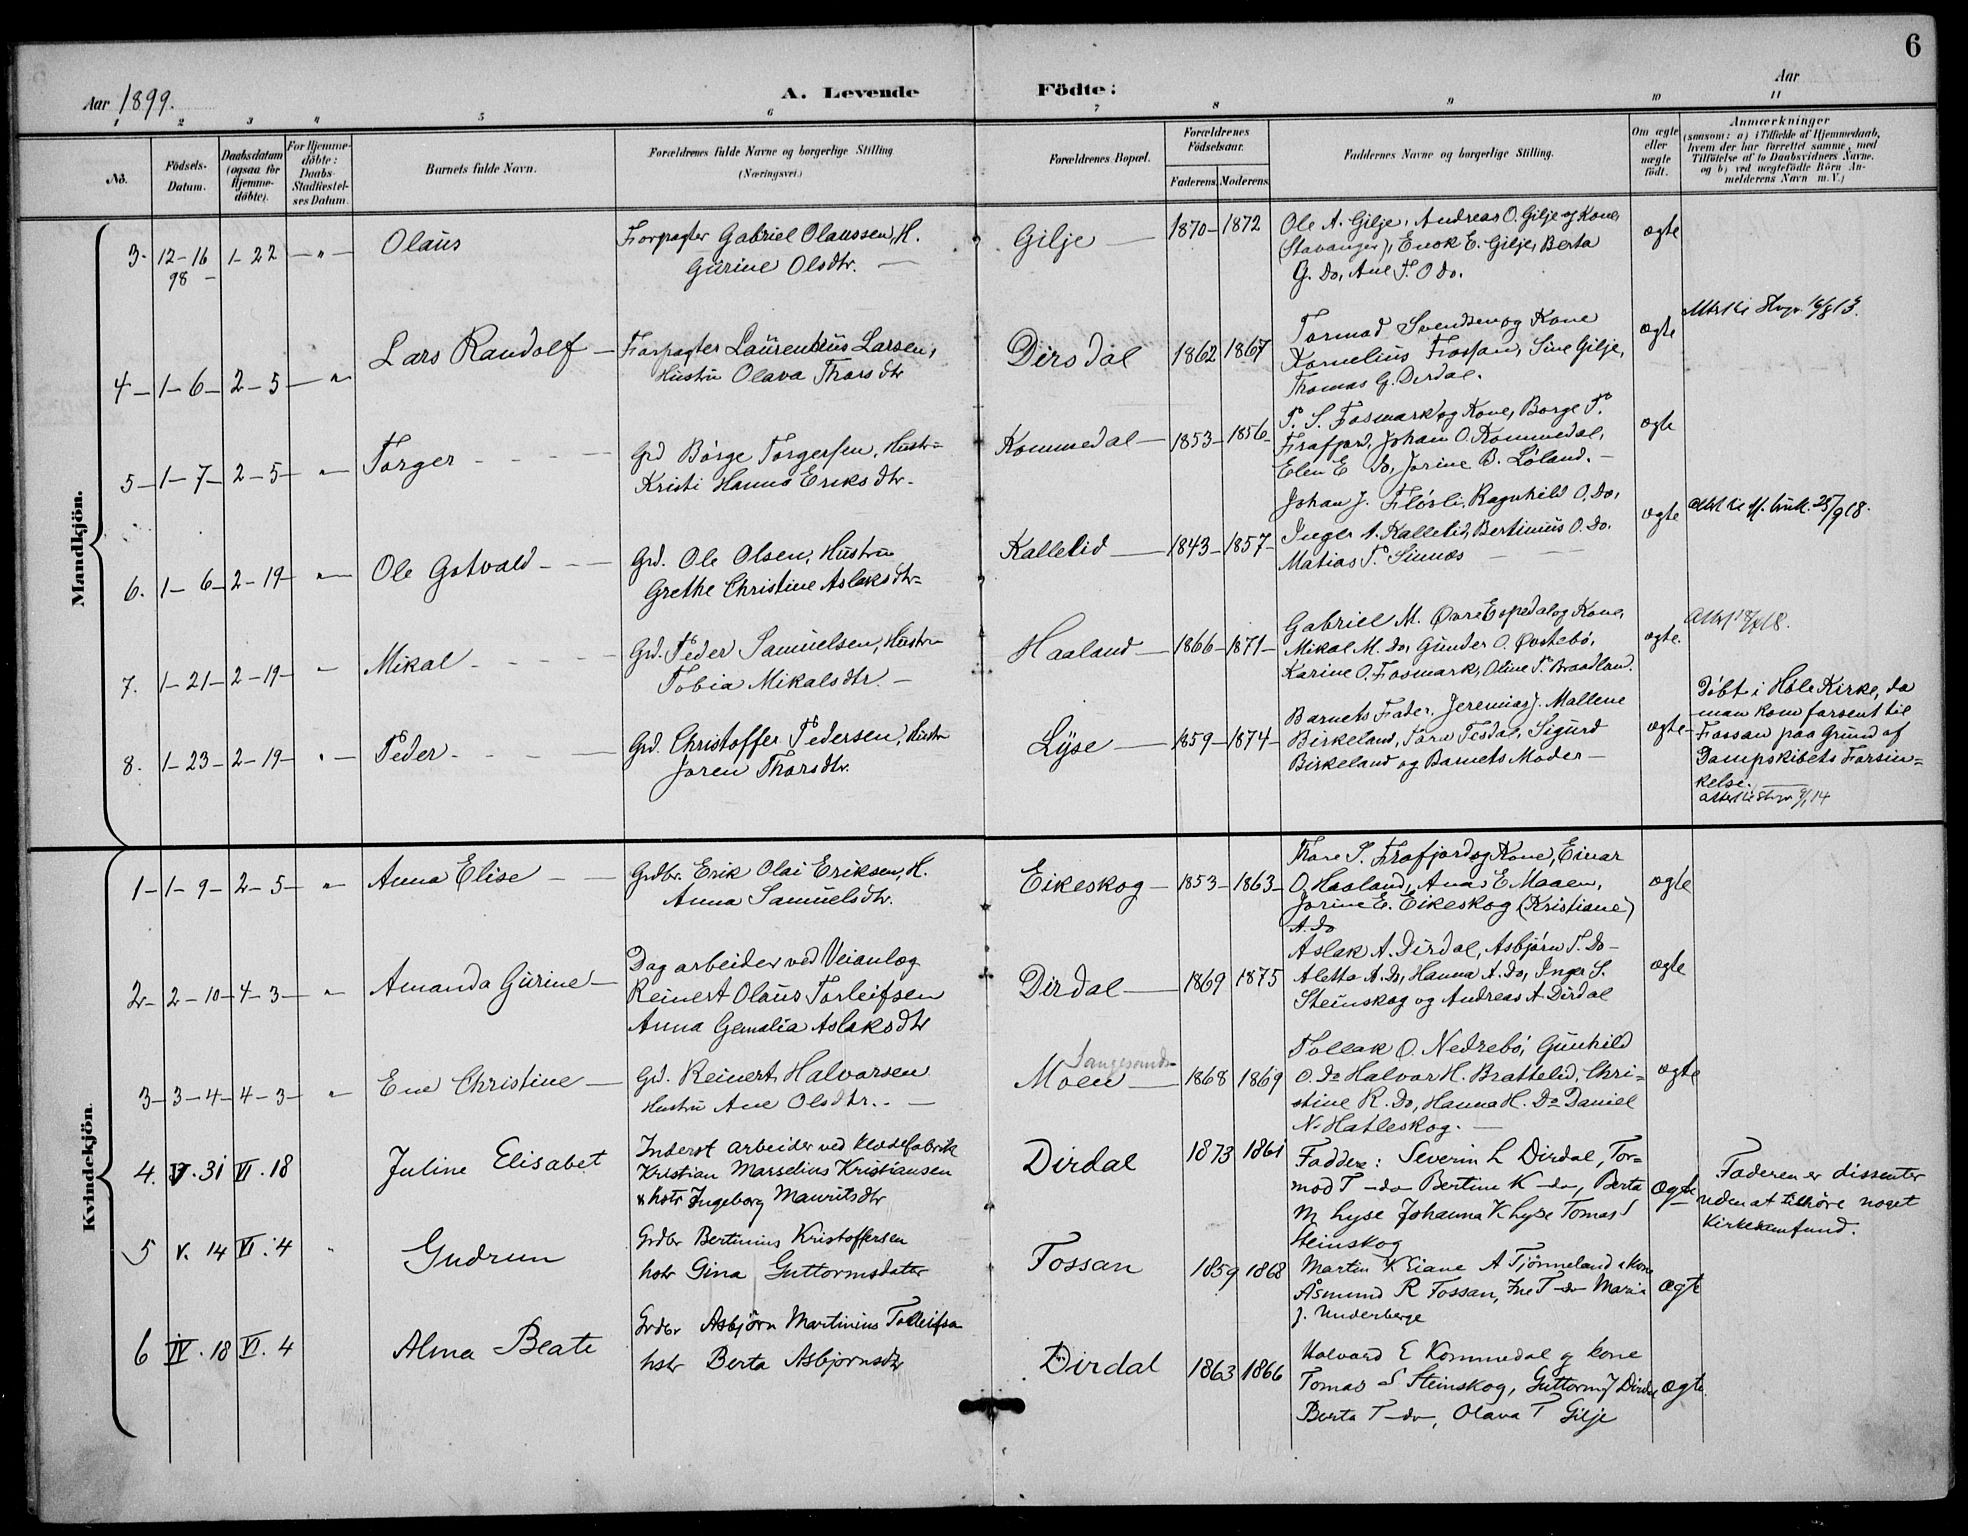 6
Aar 1899.
A. Levende Födte:
Aar
1 2 3 4 5 6 7 8 9 10 11
No.
Födsels-Datum.
Daabsdatum (ogsaa for Hjemmedöbte).
For Hjemmedöbte: Daabs-Stadfæstelses Datum.
Barnets fulde Navn.
Forældrenes fulde Navne og borgerlige Stilling
(Næringsvei.)
Forældrenes Bopæl.
Forældrenes Födselsaar.
Faderens. Moderens.
Faddernes Navne og borgerlige Stilling.
Om ægte eller uægte födt.
Anmærkninger
(saasom: a) i Tilfælde af Hjemmedaab,
hvem der har forrettet samme, med
Tilföielse af to Daabsvidners Navne,
og b) ved uægtefödte Börn An-
melderens Navn m. V.)
Mandkjön.
3. 12-16 98 - 1-22 - " - Olaus
Forpagter Gabriel Olaussen, H.
Gurine Olsdtr. -
Gilje - 1870 - 1872
Ole A. Gilje, Andreas O. Gilje og Kone,
(Stavanger), Enok E. Gilje, Berta
G. Do, Ane T. O Do.
ægte
4 - 1-6 - 2-5 - " Lars Randolf -
Forpagter Laurentius Larsen,
Hustru Olava Thorsdtr
Dirsdal 1862 1867
Tormod Svendsen og Kone
Kornelius Fossan, Sine Gilje,
Thomas G. Derdal.
ægte
5 - 1-7 - 2-5 - " - Torger - - -
Grd Börge Torgersen, Hustru
Kristi Hanna Eriksdtr.
Kommedal - 1853 - 1856 -
T. S. Fosmark og Kone, Borge T.
Frafjord, Johan O. Kommedal,
Elen E Do, Jorine B. Löland. -
ægte
6. 1-6 - 2-19 - " - Ole Gotvald - - -
Grd. Ole Olsen, Hustru
Grethe Christine Aslaksdtr.
Kallelid - 1843 - 1857 -
Johan J. Flösli, Ragnhild O. Do,
Inger A. Kallelid, Bertinius O. Do.
Matias T. Sinnæs - -
ægte
7. 1-21 - 2-19 - " Mikal - - -
Grd. Peder Samuelsen, Hustru
Tobia Mikalsdtr. -
Haaland - 1866 - 1871 -
Gabriel M. Övre Espedal og Kone,
Mikal M. Do, Gunder O. Övstebö,
Karine O. Fosmark, Oline T. Braadland.
ægte.
8. 1-23 - 2-19 - " - Peder - - -
Grd. Christoffer Pedersen, Hustru
Joren Thorsdtr.
Lyse - 1859 - 1874 -
Barnets Fader, Jeremias J. Mallene
Birkeland, Tore Tesdal, Sigurd
Birkeland og Barnets Moder -
ægte -
Döbt i Höle Kirke, da
man kom forsent til
Fossan paa Grund af
Dampskibets Forsin=
kelse.
Kvindekjön.
1 - 1-9 - 2-5 - " - Anna Elise - -
Grdbr. Erik Olai Eriksen, H.
Anna Samuelsdtr.
Eikeskog - 1853 - 1863 -
Thore S. Frafjord og Kone, Einar
O. Haaland, Anna E. Maaen,
Jorine E. Eikeskog (Kristiane)
A. Do
ægte
2 - 2-10 - 4-3 - " Amanda Gurine -
Dagarbeider ved Veianlæg
Reinert Olaus Torleifsen
Anna Gemalia Aslaksdtr
Dirdal - 1869 1875
Aslak A. Dirdal, Asbjörn T. Do -
Aletta A. Do, Hanna A. Do, Inger S.
Steinskog og Andreas A Dirdal
ægte
3 - 3-4 - 4-3 - " Ene Christine -
Grd. Reinert Halvorsen
Hustru Ane Olsdtr. -
Moen - 1868 1869
Tollak O. Nedrebö, Gunhild
O. Do Halvor H. Brattelid, Chri=
stine R. Do, Hanna H. Do Daniel
N. Hatleskog. -
ægte
4. V. 31 VI. 18 Juline Elisabet
Inderst arbeider ved klædefabrik
Kristian Marselius Kristiansen
& hstr Ingeborg Mauritsdtr
Dirdal 1873 1861
Faddere: Severin L Dirdal, Tor=
mod T - do Bertine K - do, Berta
M Lyse Johanna K Lyse Tomas S
Steinskog
ægte
Faderen er dissenter
uden at tilhöre noget
Kirkesamfund.
5 V. 14 VI. 4 " Gudrun
Grdbr Bertinius Kristoffersen
hstr Gina Guttormsdatter
Fossan 1859 1868
Martin K Eiane A Tjönneland & kone
Åsmund R Fossan, Ine T - do Maria
J. Underberge
ægte
6 IV. 18 VI. 4 Alma Beate
Grdbr Asbjörn Martinius Tolleifsen
hstr Berta Asbjørnsdtr
Dirdal 1863 1866
Halvard E Kommedal og kone
Tomas S Steinskog, Guttorm J Dirdal
Berta T - do, Olava T Gilje
ægte.